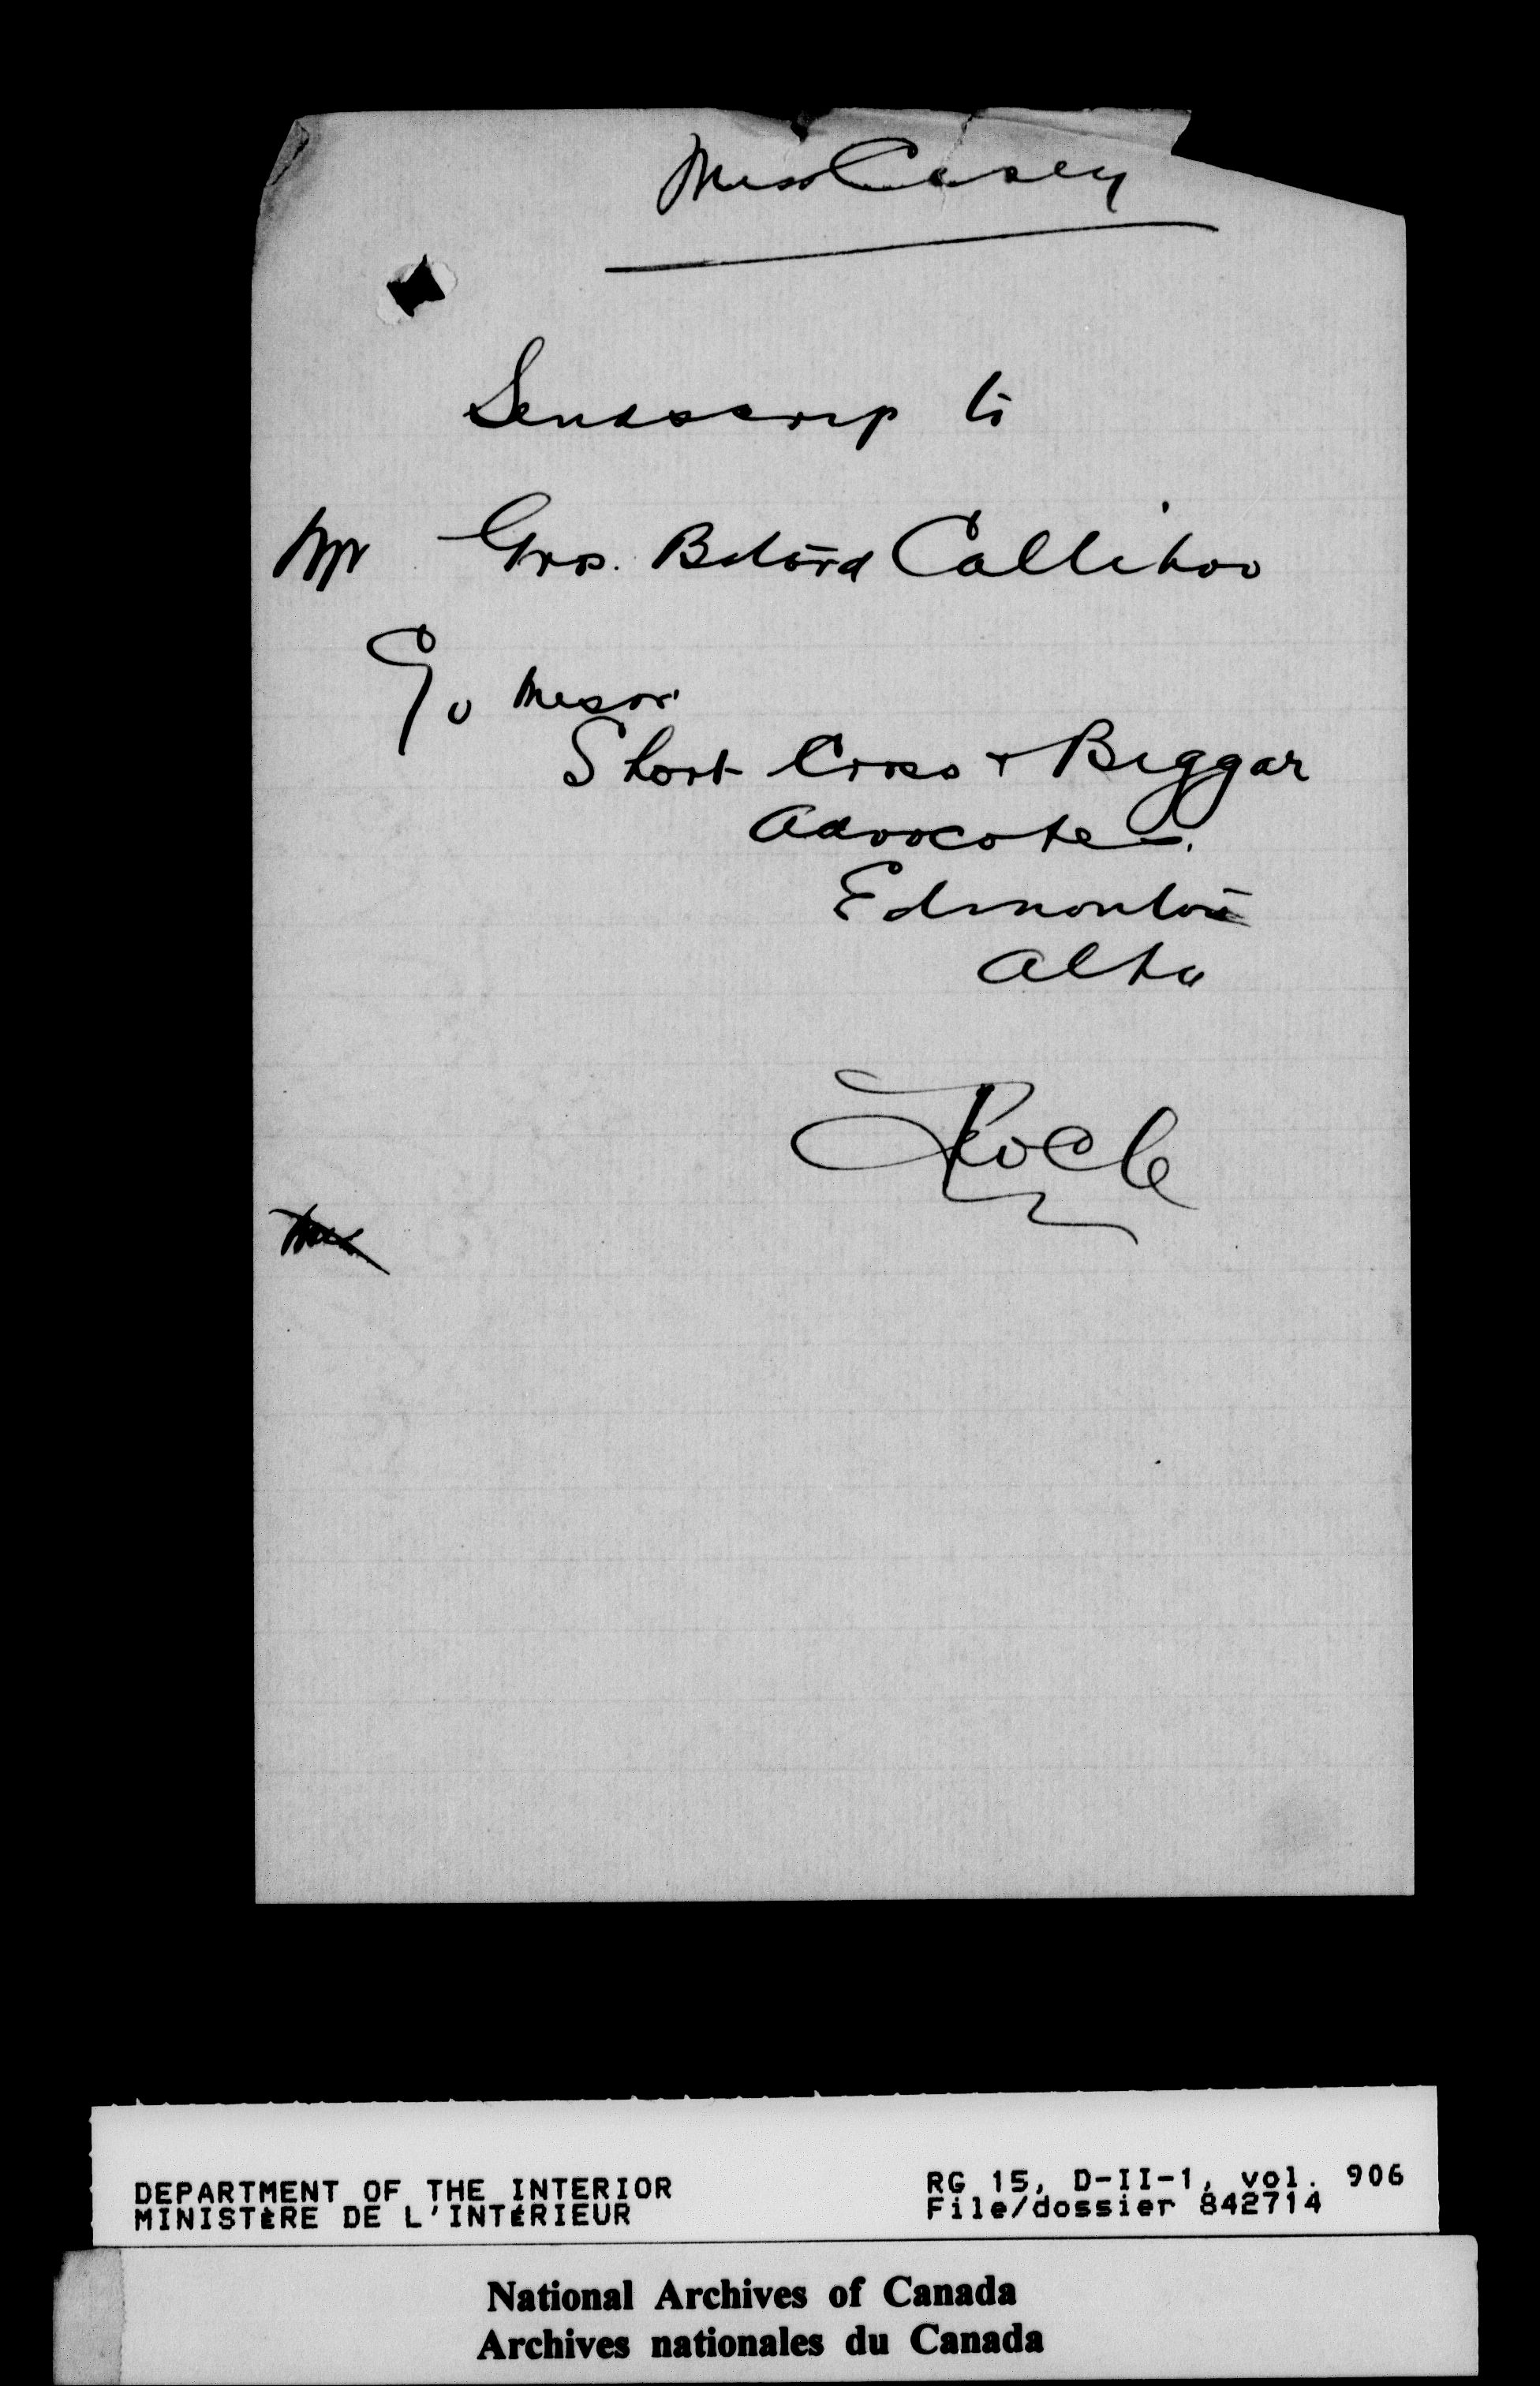 Miss Casey
Send scrip to
Mr Gros. Batard Callihoo
C/o Messrs
Short Cross & Biggar
Advocates.
Edmonton
Alta
DEPARTMENT OF THE INTERIOR
MINISTÈRE DE L'INTÉRIEUR
RG 15, D-II-1, vol. 906
File/dossier 842714
National Archives of Canada
Archives nationales du Canada